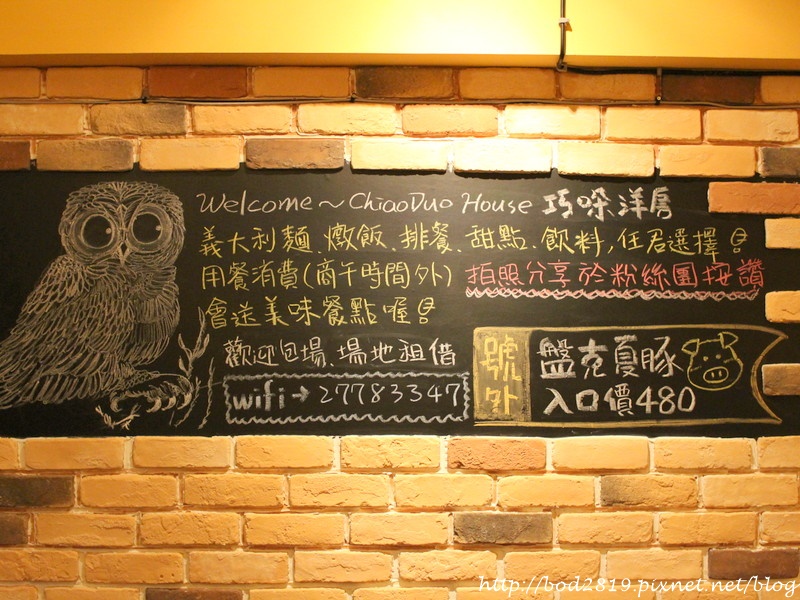 Welcome～ChiaoDuo House 巧哚洋房
義大利麵、燉飯、排餐、甜點、飲料，任君選擇！
用餐消費(商午時間外) 拍照分享於粉絲團按讚
會送美味餐點喔！
歡迎包場、場地租借
wifi→27783347
號外
盤克夏豚
入口價480
http://bod2819.pixnet.net/blog